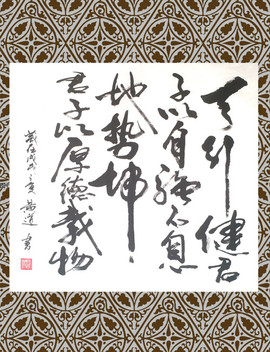 天行健君
子以自強不息
地势坤
君子以厚德載物
歲在戊戌之夏
書